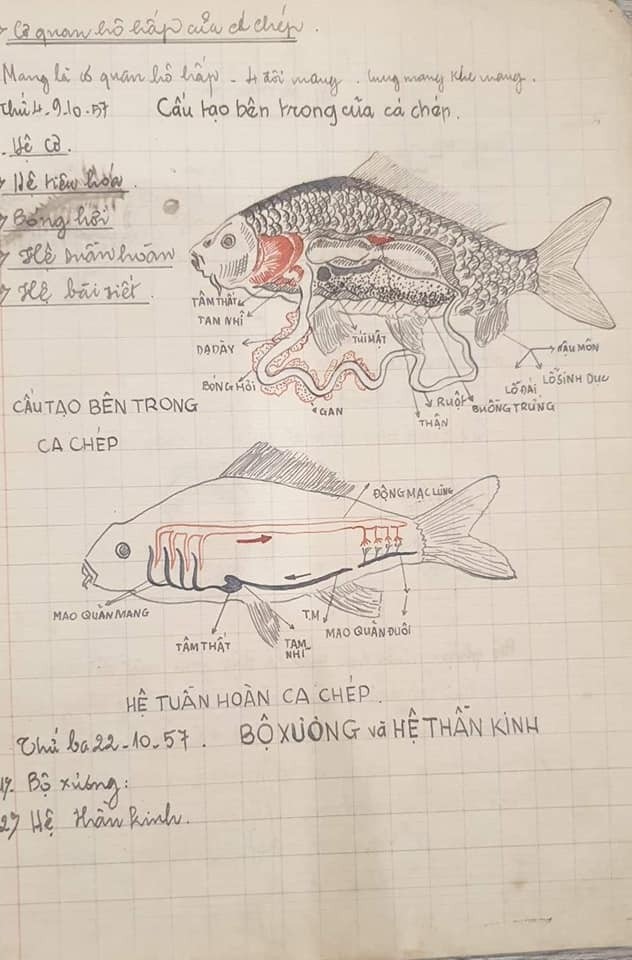 Cơ quan hô hấp của cá chép.
Mang là cơ quan hô hấp - 4 đôi mang. cung mang khe mang.
Thứ 4-9-10-57 Cấu tạo bên trong của cá chép.
Hệ cơ.
Hệ tiêu hóa.
Bóng hơi
Hệ tuần hoàn
Hệ bài tiết.
TÂM THẤT
TAM NHĨ
DẠ DÀY
TÚI MẬT
BÓNG HƠI
GAN
THẬN
RUỘT
BUỒNG TRỨNG
LỖ ĐÁI
LỖ SINH DỤC
HẬU MÔN
CẤU TẠO BÊN TRONG
CA CHÉP
ĐỘNG MẠC LƯNG
MAO QUẢN MANG
TÂM THẤT
TAM NHĨ
T.M
MAO QUẢN ĐUÔI
HỆ TUẦN HOÀN CA CHÉP.
Thứ ba 22-10-57. BỘ XƯƠNG và HỆ THẦN KINH
1). Bộ xương:
2) Hệ thần kinh.